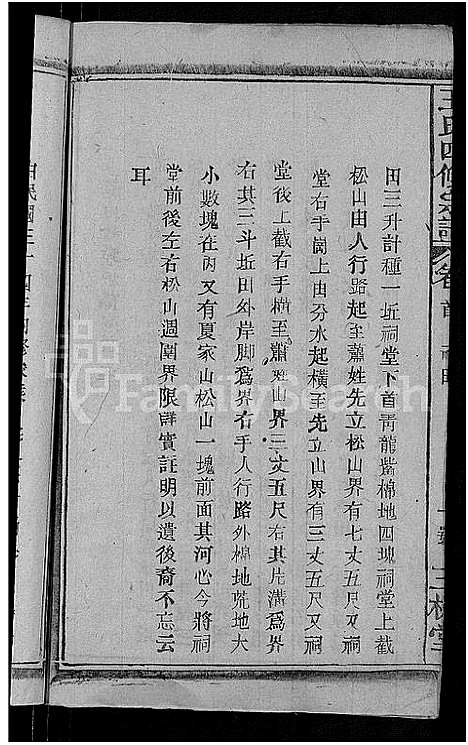 王氏四修宗譜
卷首
田三升計種一坵祠堂下首靑龍嘴棉地四塊祠堂上截
松山由人行路起至蕭姓先立松山界有七丈五尺又祠
堂右手崗上由分水起橫至先立山界有三丈五尺又祠
堂後上截右手橫至蕭姓山界三丈五尺右其片溝爲界
右其三斗坵田外岸脚爲界右手人行路外棉地荒地大
小數塊在內又有夏家山松山一塊前面其河心今將祠
堂前後左右松山週圍界限詳實註明以遺後裔不忘云
耳
FamilySearch